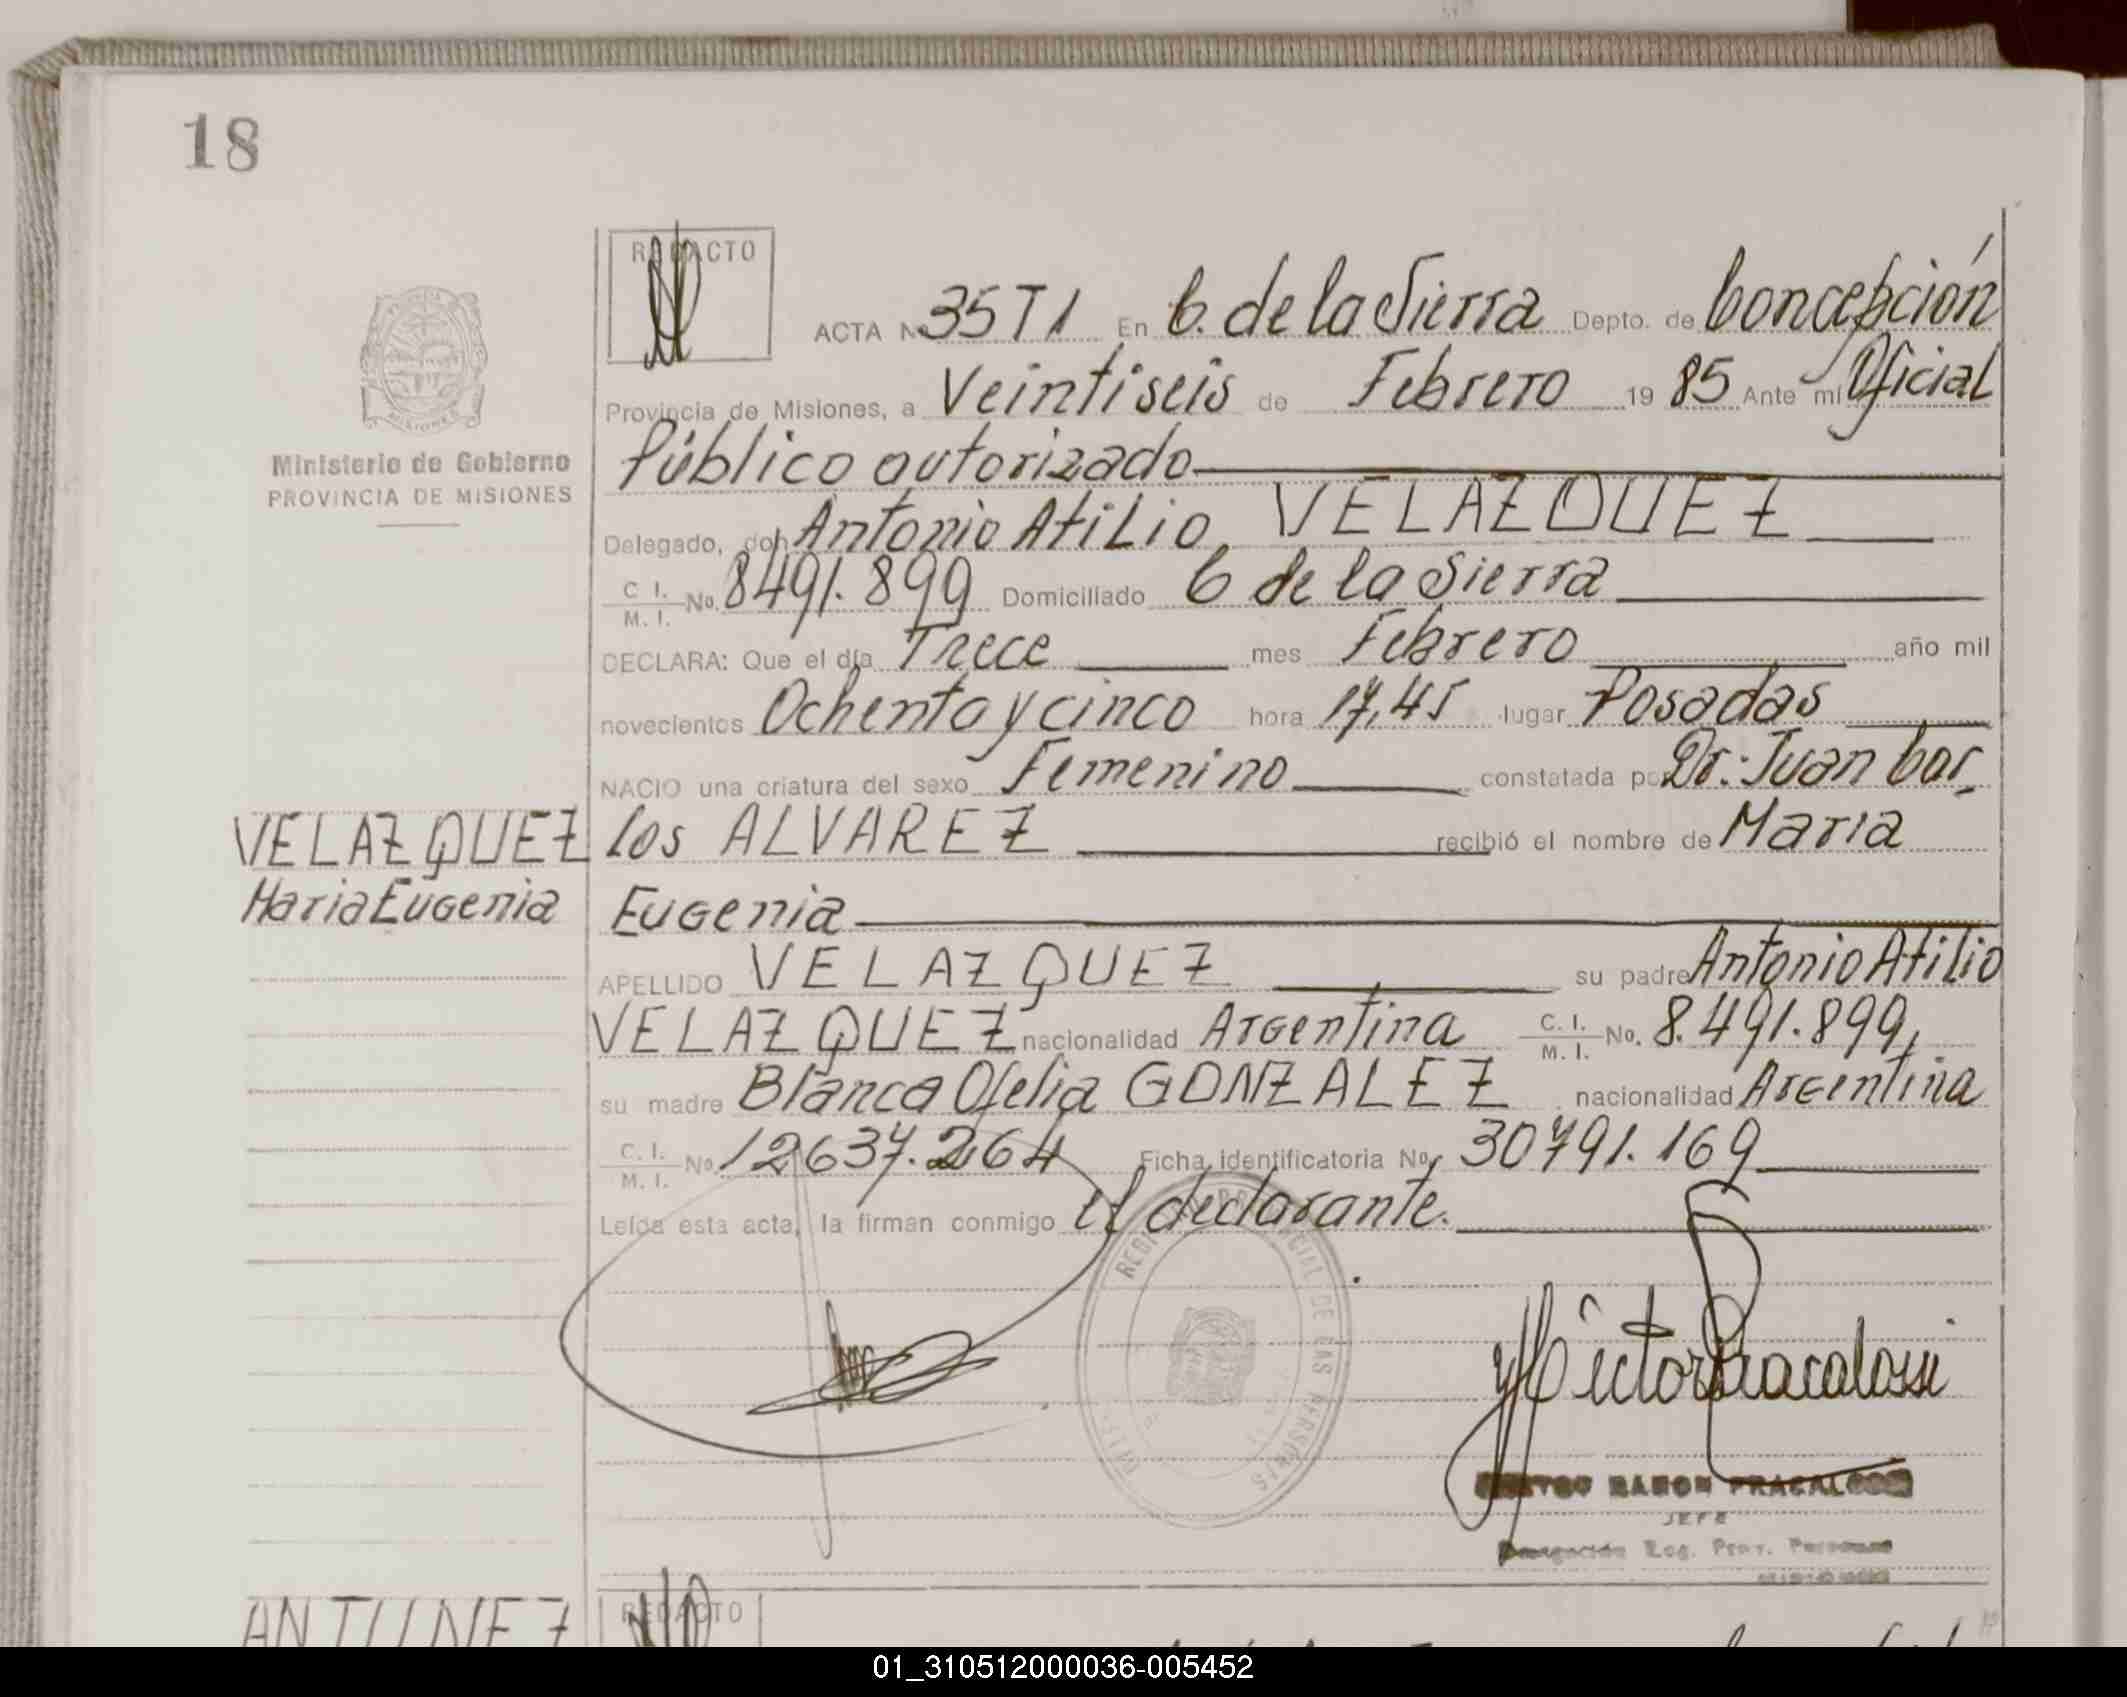 18
REDACTO
ACTA N. 35 T I En C. de la Sierra Depto. de Concepción
Provincia de Misiones, a Veintiseis de Febrero 19 85 Ante mi Oficial
Público autorizado
Ministerio de Gobierno
PROVINCIA DE MISIONES
Delegado, don Antonio Atilio VELAZQUEZ
C. I. / M. I. No. 8491.899 Domiciliado C de la Sierra
DECLARA: Que el día Trece mes Febrero año mil
novecientos Ochenta y cinco hora 17,45 lugar Posadas
NACIO una criatura del sexo Femenino constatada por Dr: Juan Car_
los ALVAREZ recibió el nombre de Maria
Eugenia
VELAZQUEZ
Maria Eugenia
APELLIDO VELAZQUEZ su padre Antonio Atilio
VELAZQUEZ nacionalidad Argentina C. I. / M. I. No. 8.491.899,
su madre Blanca Ofelia GONZALEZ nacionalidad Argentina
C. I. / M. I. No. 12637.264 Ficha identificatoria No. 30791.169
Leída esta acta, la firman conmigo el declarante.
DE LAS PERSONAS
Hector Fracalossi
RAMON FRACALOSSI
JEFE
Delegación Reg. Prov. Personas
ANTUNEZ
REDACTO
01_310512000036-005452